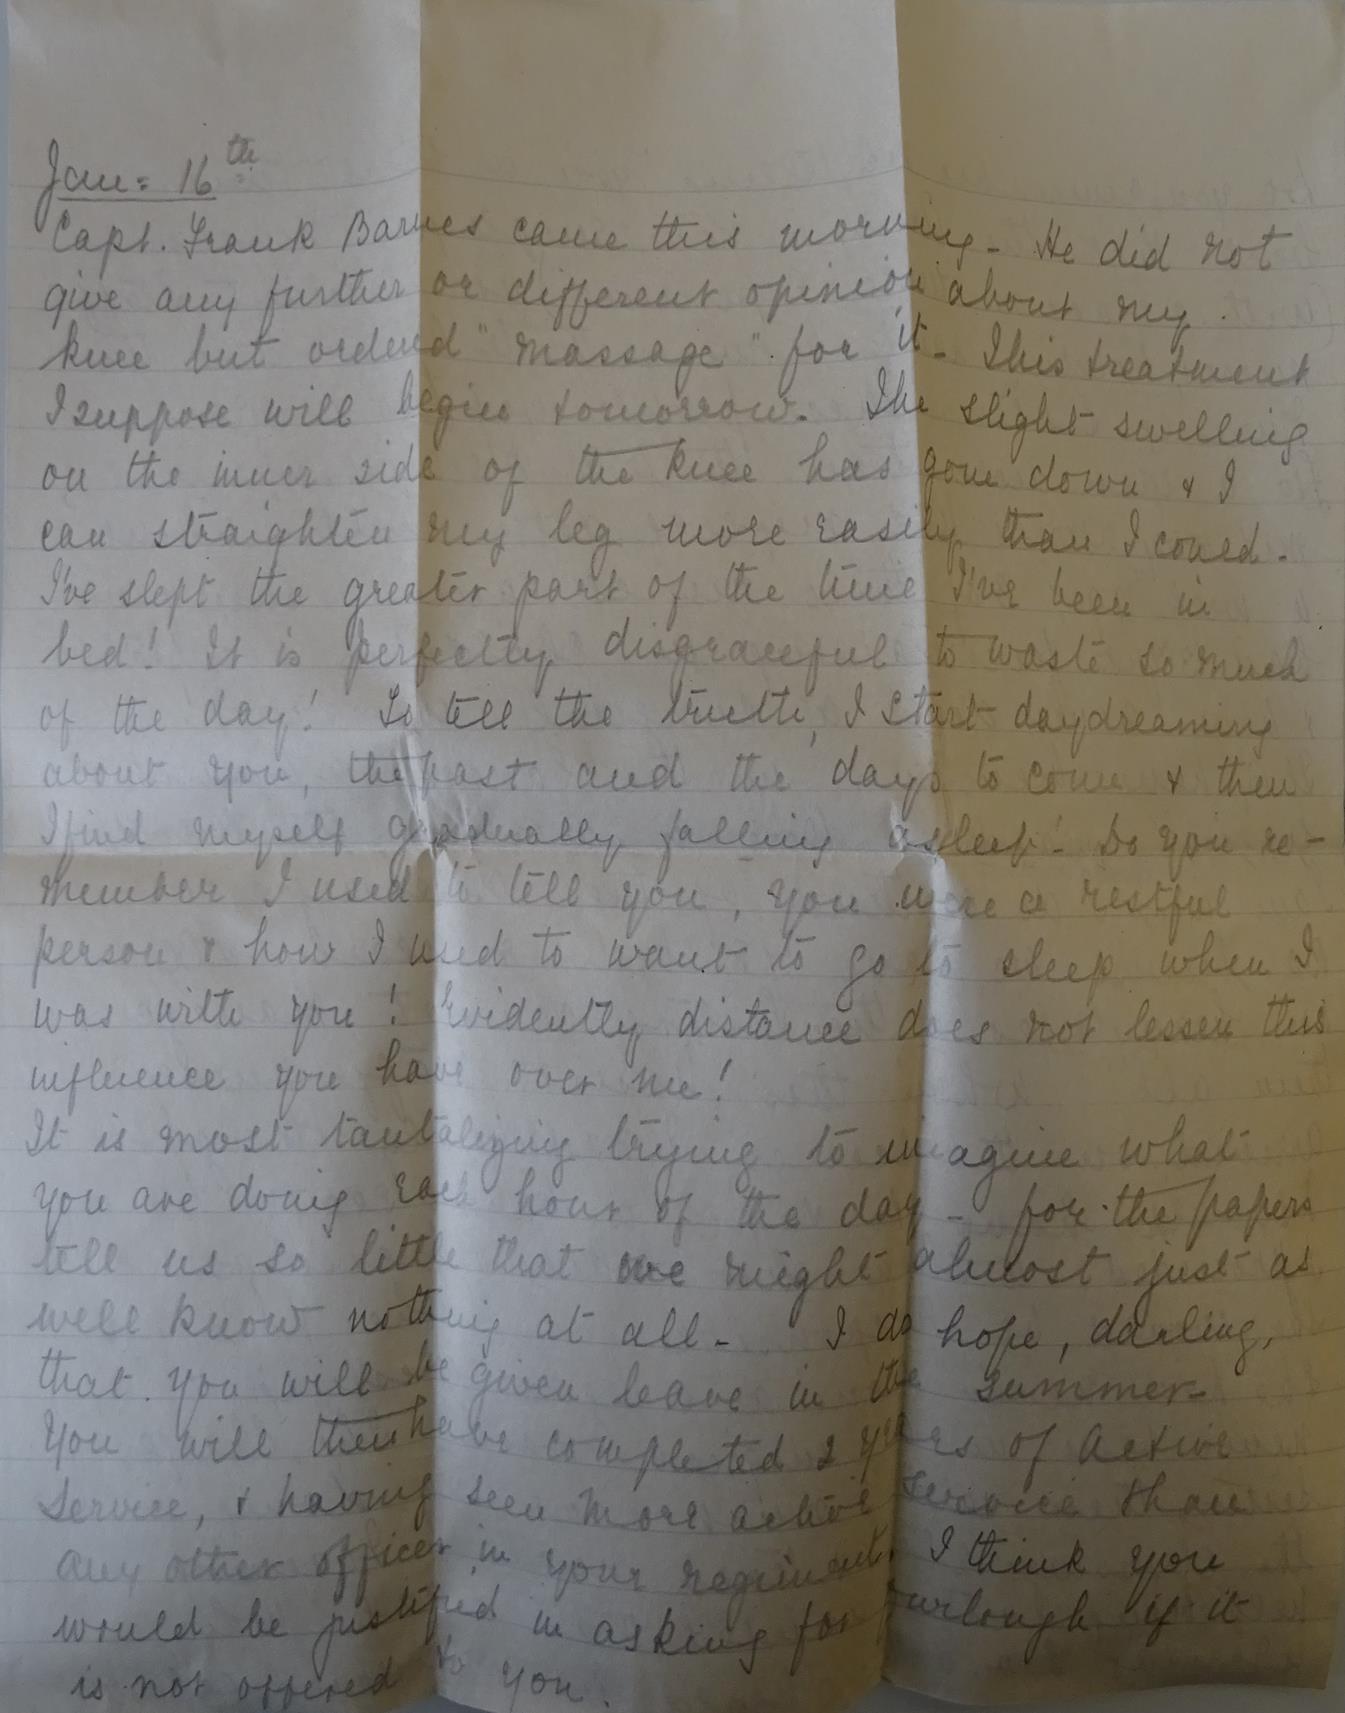 Jan= 16th
Capt. Frank Barnes came this morning - He did not
give any further or different opinion about my
knee but ordered "massage" for it - This treatment
I suppose will begin tomorrow. The slight swelling
on the inner side of the knee has gone down & I
can straighten my leg more easily than I could.
I've slept the greater part of the time I've been in
bed! It is perfectly disgraceful to waste so much
of the day! To tell the truth, I start daydreaming
about you, the past and the days to come & then
I find myself gradually falling asleep! Do you re-
member I used to tell you, you were a restful
person & how I used to want to go to sleep when I
was with you! Evidently distance does not lessen this
influence you have over me!
It is most tantalizing trying to imagine what
you are doing each hour of the day - for the papers
tell us so little that one might almost just as
well know nothing at all - I do hope, darling,
that you will be given leave in the summer-
You will then have completed 2 years of Active
Service, & having seen more active service than
any other officer in your regiment, I think you
would be justified in asking for furlough if it
is not offered to you.